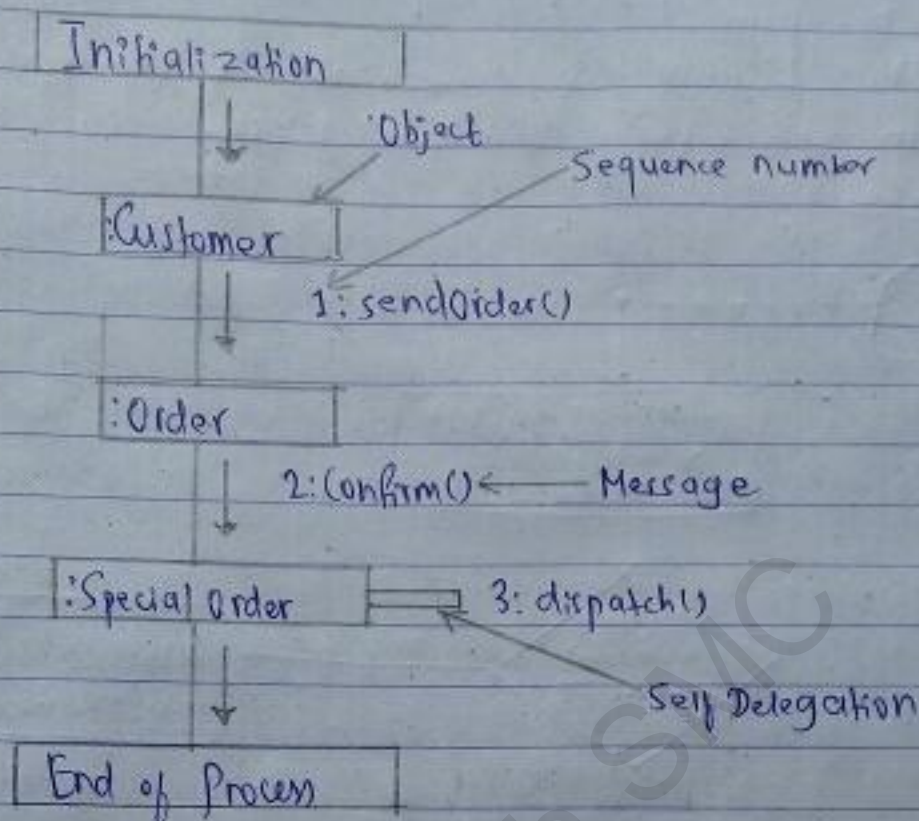 Initialization
:Object
Sequence number
:Customer
1: sendOrder()
:Order
2: Confirm() Message
:Special Order 3: dispatch()
Self Delegation
End of Process
SMC